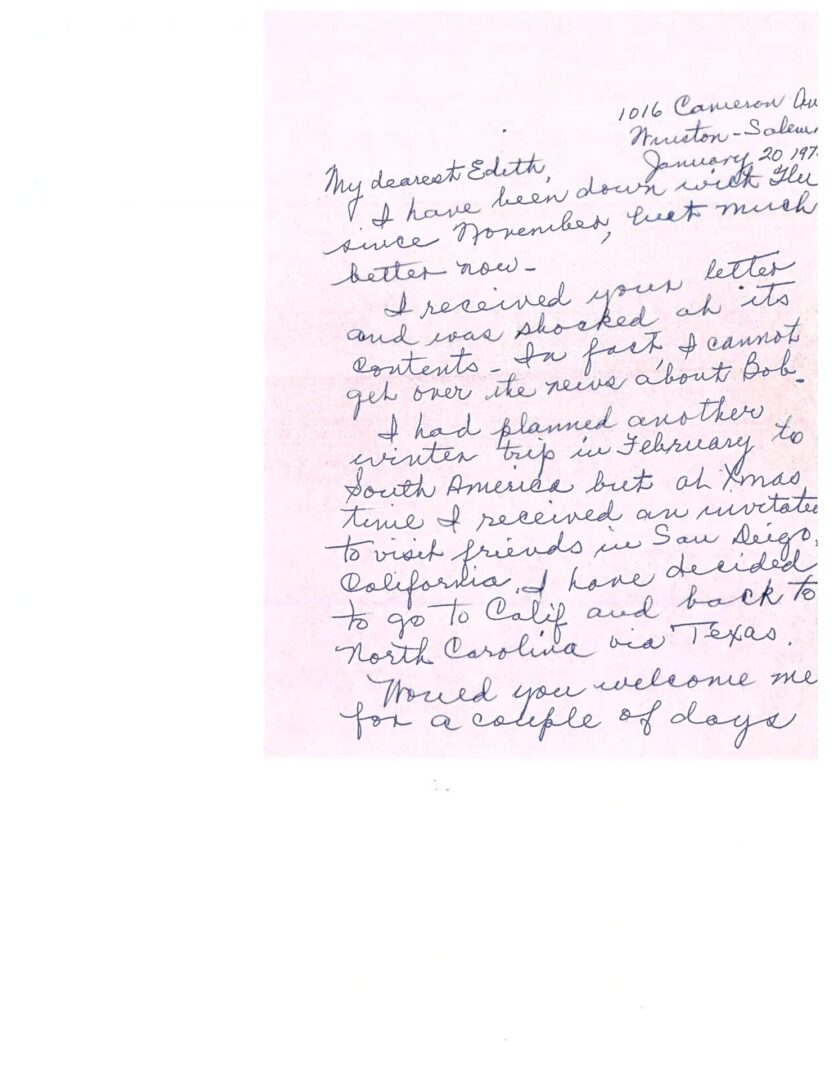 1016 Cameron Av
Winston-Salem,
January 20 197
My dearest Edith,
I have been down with Flu
since November, but much
better now-
I received your letter
and was shocked at its
contents- In fact, I cannot
get over the news about Bob-
I had planned another
winter trip in February to
South America but at Xmas
time I received an invitatio
to visit friends in San Deigo,
California. I have decided
to go to Calif and back to
North Carolina via Texas.
Would you welcome me
for a couple of days